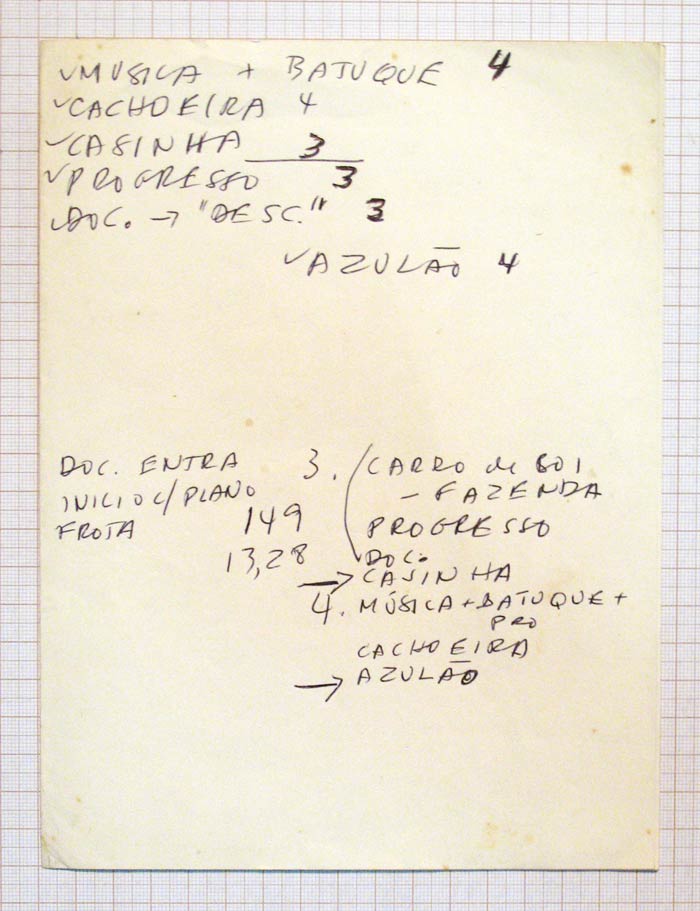 ✓MÚSICA + BATUQUE 4
✓CACHOEIRA 4
✓CASINHA 3
✓PROGRESSO 3
✓DOC. → "DESC." 3
✓AZULÃO 4
DOC. ENTRA
INICIO C/ PLANO
FROTA 149
13,28
3. CARRO de BOI
- FAZENDA
PROGRESSO
DOC.
→ CASINHA
4. MÚSICA + BATUQUE +
PRO
CACHOEIRA
→ AZULÃO